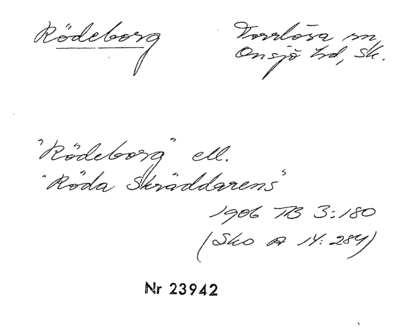 Rödeborg
Torrlösa sn
Onsjö hd, Sk.
"Rödeborg" ell.
"Röda Skräddarens"
1906 TB 3:180
(Sko a 14:284)
Nr 23942